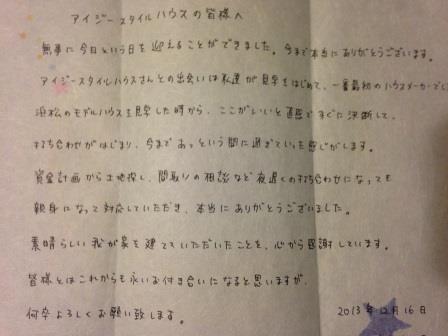 アイジースタイルハウスの皆様へ
無事に今日という日を迎えることができました。今まで本当にありがとうございます。
アイジースタイルハウスさんとの出会いは私達が見学をはじめて、一番最初のハウスメーカーでし
浜松のモデルハウスを見学した時から、ここがいいと直感ですぐに決断して、
打ち合わせがはじまり、今まであっという間に過ぎていった感じがします。
資金計画から土地探し、間取りの相談など夜遅くの打ち合わせになっても
親身になって対応していただき、本当にありがとうございました。
素晴らしい我が家を建てていただいたことを、心から感謝しています。
皆様とはこれからも永いお付き合いになると思いますが、
何卒よろしくお願い致します。 2013年12月16日